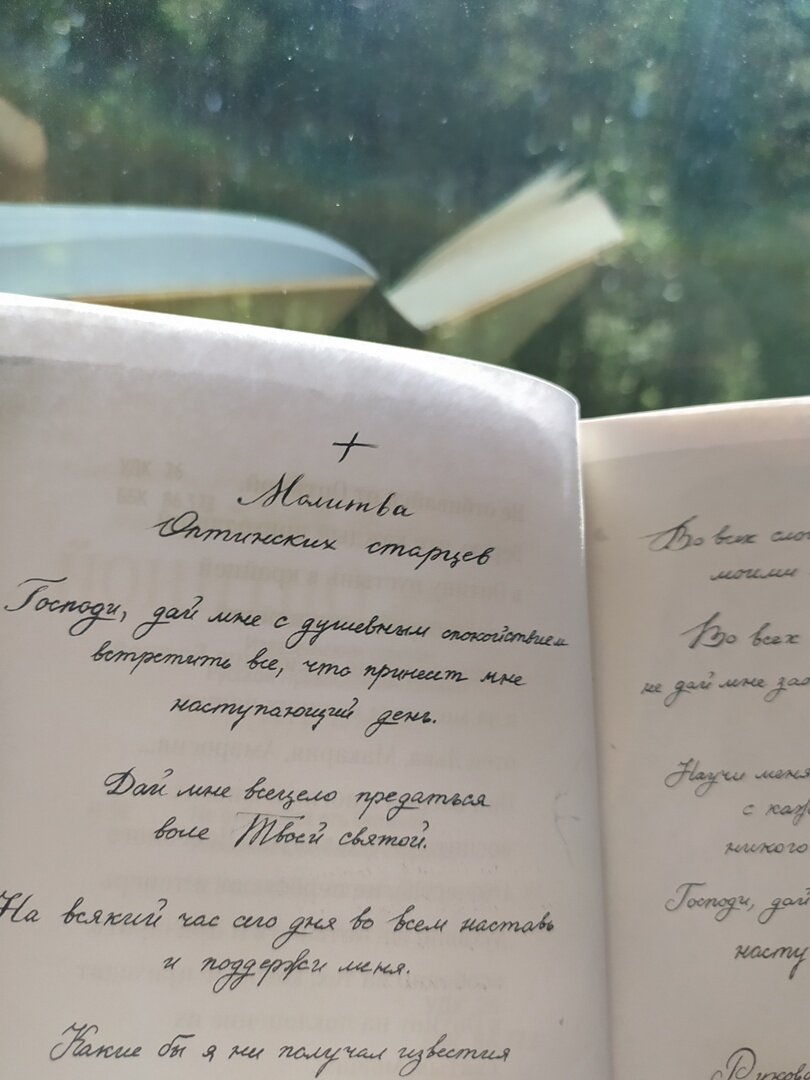 Молитва
Оптинских старцев
Господи, дай мне с душевным спокойствием
встретить все, что принесет мне
наступающий день.
Дай мне всецело предаться
воле Твоей святой.
На всякий час сего дня во всем наставь
и поддержи меня.
Какие бы я ни получал известия
Во всех
моими
Во всех
не дай мне
Научи меня
с
никого
Господи, дай